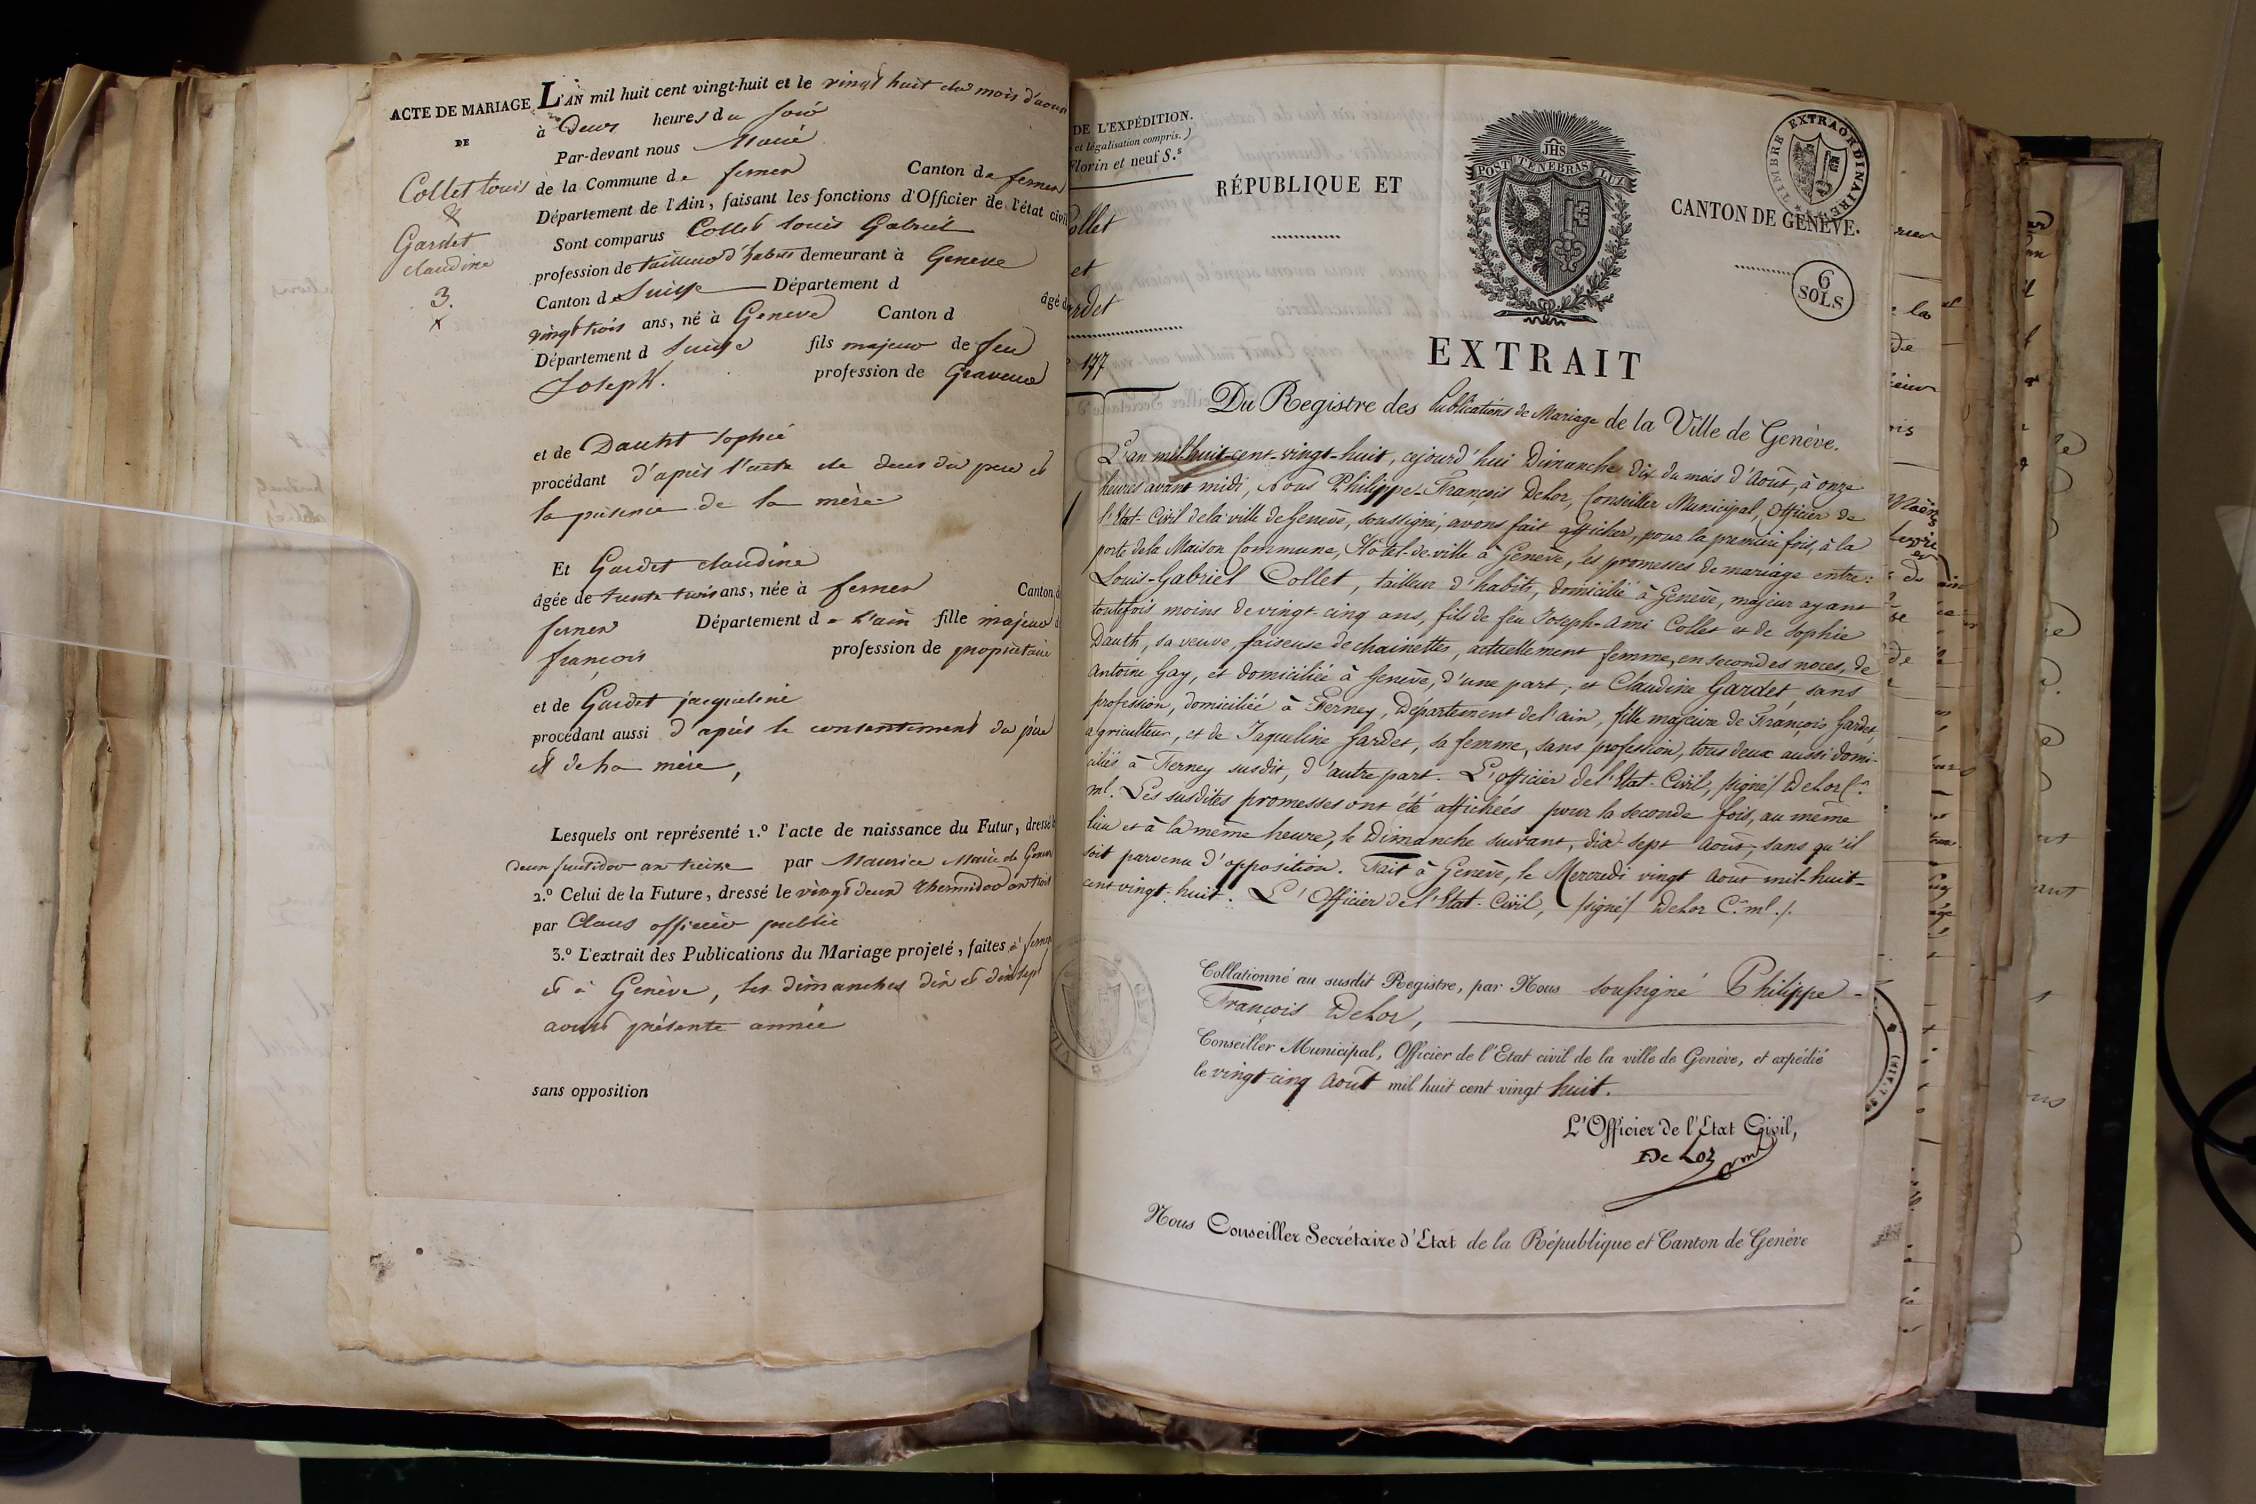 ACTE DE MARIAGE
DE
Collet Louis
&
Gardet
claudine
3.
x
L'AN mil huit cent vingt-huit et le vingt huit du mois d'aout
à Deux heures du soir
Par-devant nous Maire
de la Commune de ferney Canton de ferney
Département de l'Ain, faisant les fonctions d'Officier de l'état civil
Sont comparus Collet Louis Gabriel
profession de tailleur d'habits demeurant à Geneve
Canton de Suisse Département d âgé de
vingt trois ans, né à Geneve Canton d
Département d Suisse fils majeur de feu
Joseph. profession de Graveur
et de Dautht Sophie
procédant d'après l'acte de deces du pere et
la présence de la mère
Et Gardet claudine
âgée de trente trois ans, née à ferney Canton d
ferney Département de L'ain fille majeure d
françois profession de propriétaire
et de Gardet jacqueline
procédant aussi d'après le consentement du père
et de la mère,
Lesquels ont représenté 1.º l'acte de naissance du Futur, dressé le
deux fructidor an treize par Maurice Maire de Geneve
2.º Celui de la Future, dressé le vingt deux thermidor an trois
par Claus officier public
3.º L'extrait des Publications du Mariage projeté, faites à ferney
et à Genève, les dimanches dix et dix sept
aout présente année
sans opposition
DE L'EXPÉDITION.
et légalisation compris.)
Florin et neuf S.s
ollet
et
rdet
177
RÉPUBLIQUE ET
POST TENEBRAS LUX
JHS
CANTON DE GENÈVE.
TIMBRE EXTRAORDINAIRE
6
SOLS
EXTRAIT
Du Registre des Publications de Mariage de la Ville de Genève.
L'an mil-huit-cent-vingt-huit, cejourd'hui Dimanche dix du mois d'Août, à onze
heures avant midi, Nous Philippe-François DeLor, Conseiller Municipal, Officier de
l'Etat-Civil de la ville de Genève, soussigné, avons fait afficher, pour la première fois, à la
porte de la Maison Commune, Hôtel-de-ville à Genève, les promesses de mariage entre:
Louis-Gabriel Collet, tailleur d'habits, domicilié à Genève, majeur ayant
toutefois moins de vingt-cinq ans, fils de feu Joseph-Ami Collet et de Sophie
Dauth, sa veuve, faiseuse de chainettes, actuellement femme, en secondes noces, de
Antoine Gay, et domiciliée à Genève, d'une part; et Claudine Gardet, sans
profession, domiciliée à Ferney, Département de l'ain, fille majeure de François Gardet,
agriculteur, et de Jaqueline Gardet, sa femme, sans profession, tous deux aussi domi-
ciliés à Ferney susdit, d'autre part. L'officier de l'Etat-Civil, signé/ DeLor C.r
m.l. Les susdites promesses ont été affichées pour la seconde fois, au même
lieu et à la même heure, le Dimanche suivant, dix sept Août, sans qu'il
soit parvenu d'opposition. Fait à Genève, le Mercredi vingt Août mil-huit-
cent vingt-huit. L'Officier de l'Etat-Civil, /signé/ DeLor C.r m.l./.
Collationné au susdit Registre, par Nous soussigné Philippe-
François DeLor,
Conseiller Municipal, Officier de l'Etat civil de la ville de Genève, et expédié
le vingt-cinq Août mil huit cent vingt huit.
L'Officier de l'Etat Civil,
De Lor
Nous Conseiller Secrétaire d'Etat de la République et Canton de Genève